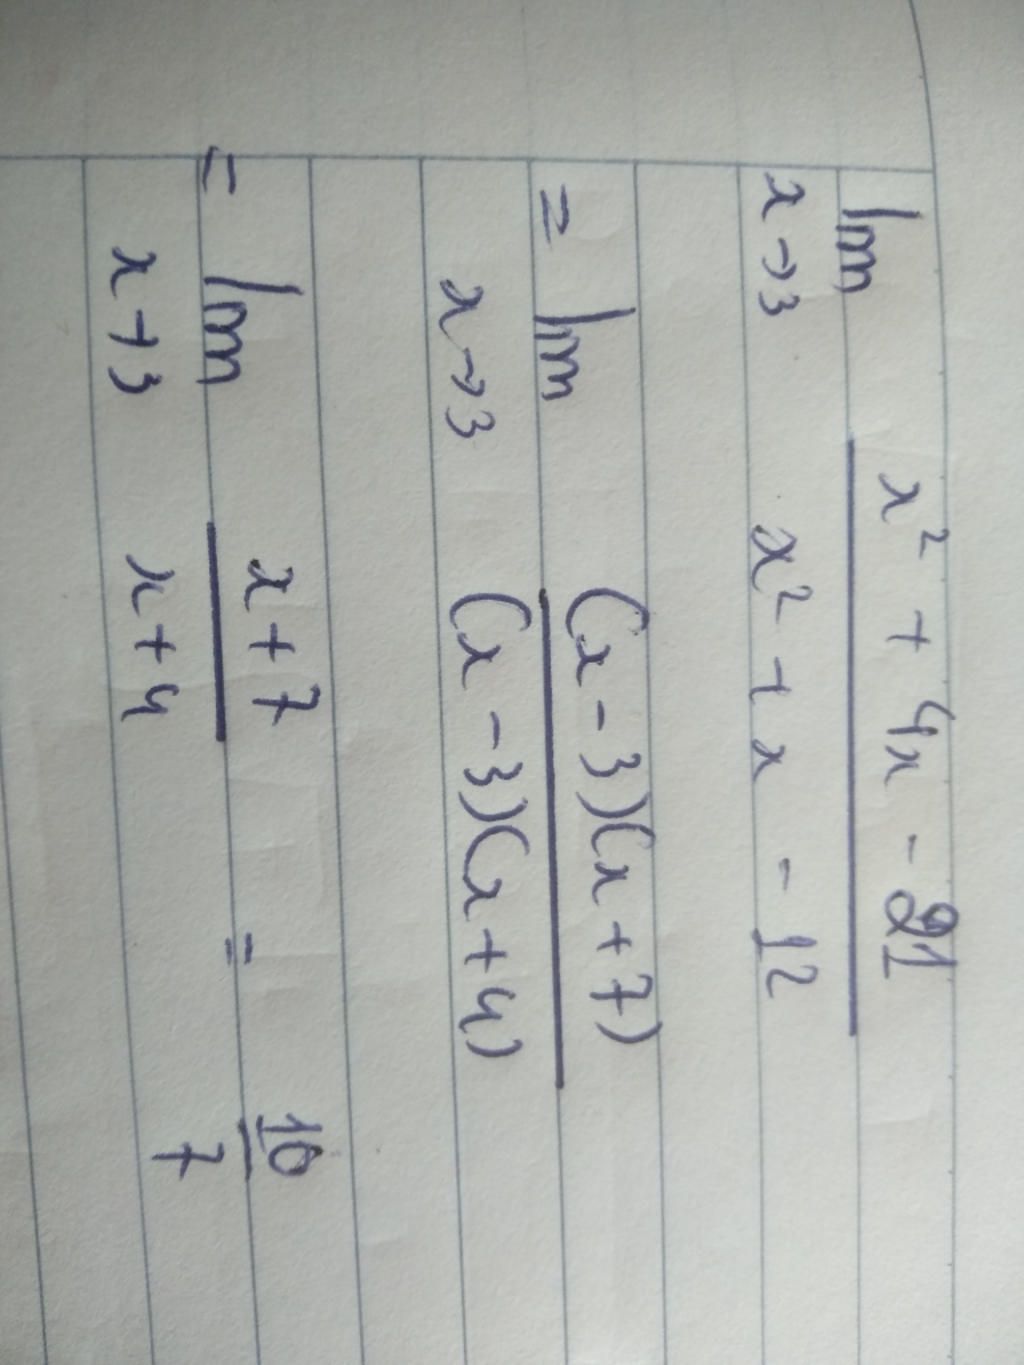 lim x→3 x² + 4x - 21 / x² + x - 12
= lim x→3 (x - 3)(x + 7) / (x - 3)(x + 4)
= lim x→3 x + 7 / x + 4 = 10 / 7